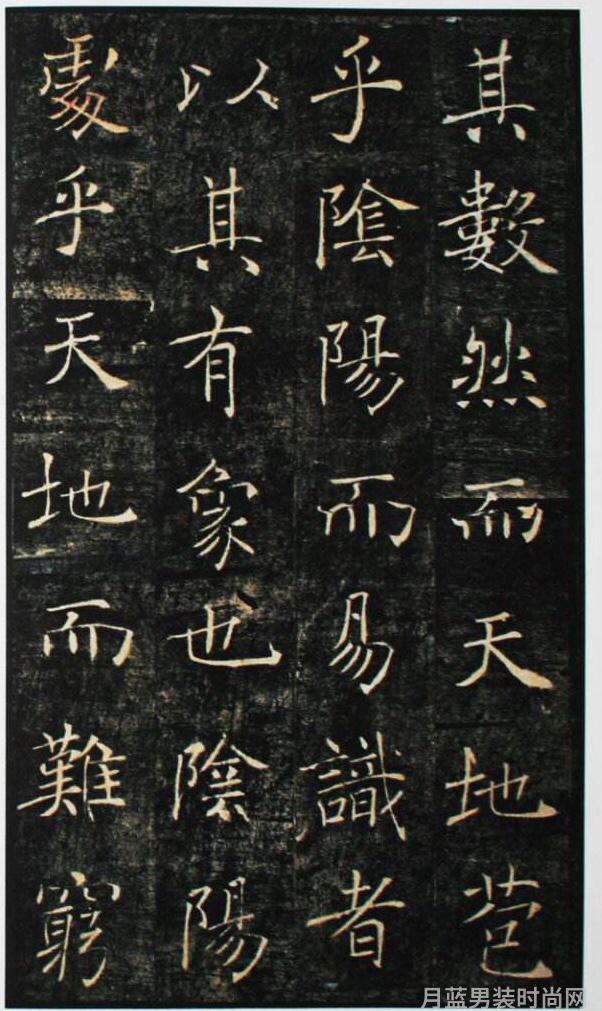 其數然而天地苞
乎陰陽而易識者
以其有象也陰陽
處乎天地而難窮
月蓝男装时尚网